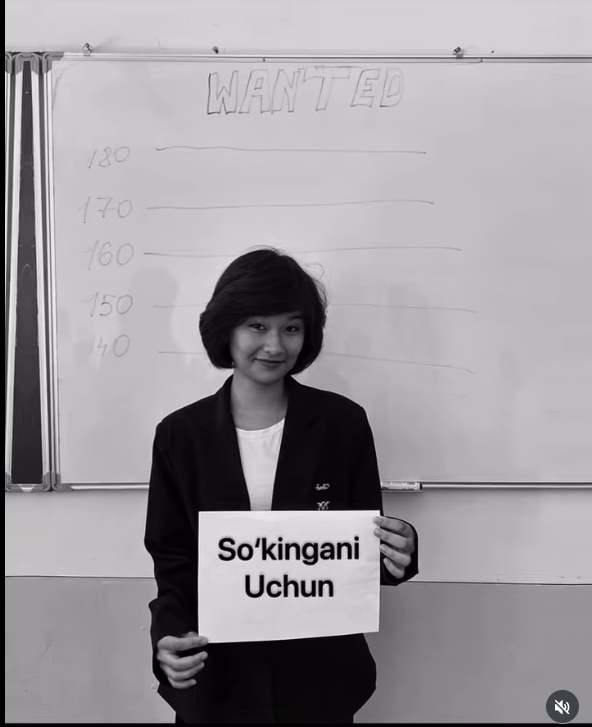 WANTED
180
170
160
150
40
So‘kingani
Uchun